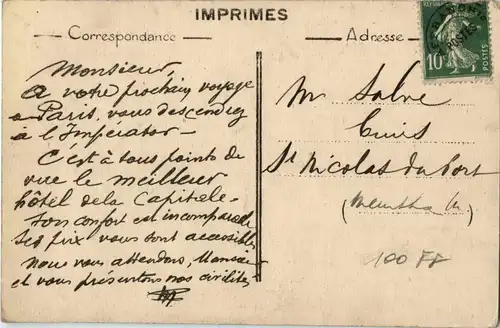 IMPRIMES
Correspondance
Adresse
10
POSTES
Monsieur,
A votre prochain voyage
a Paris, vous descendrez
à l'Imperator -
C'est à tous points de
vue le meilleur
hôtel de la Capitale.
Son confort est incomparable
Ses prix vous sont accessibles
Nous vous attendons, Monsieur
et vous présentons nos civilités
Mr
St Nicolas du Port
(Meurthe M.)
100 FF